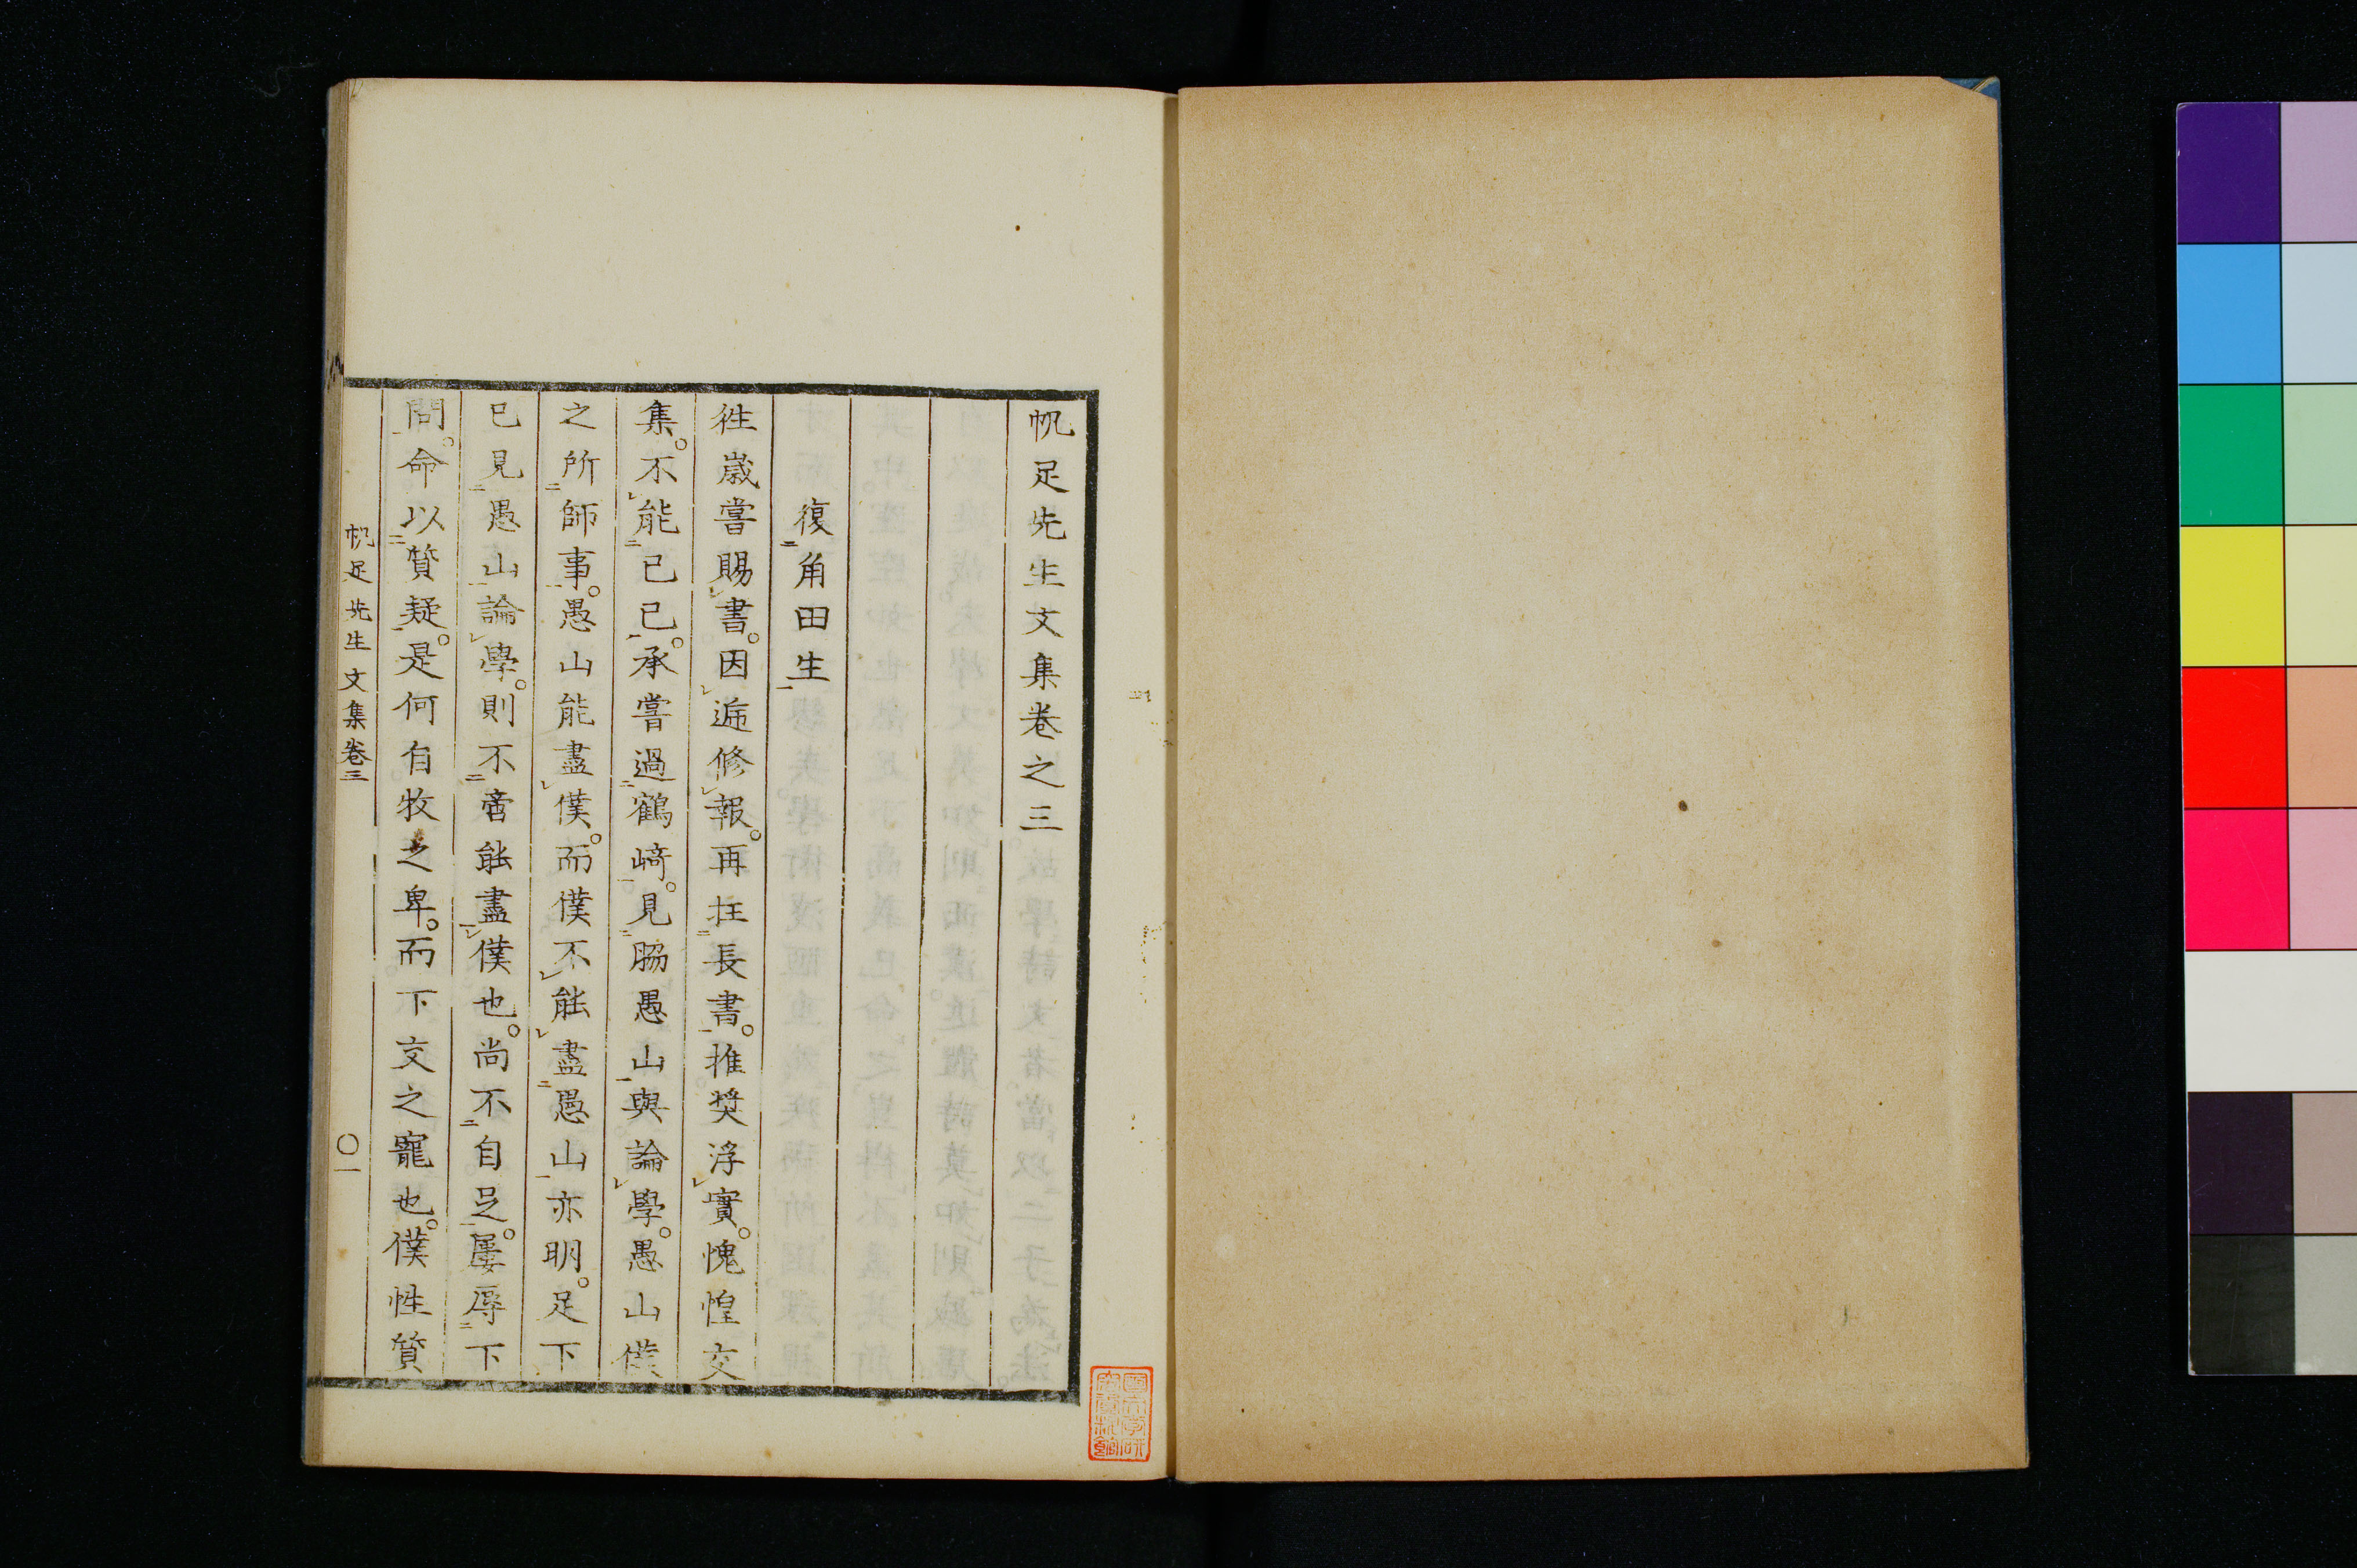 帆足先生文集卷之三
復角田生
徃歲嘗賜書。因循修報。再抂長書。推奨浮實。愧惶交
集。不能已已。承嘗過鶴﨑。見脇愚山與論學。愚山僕
之所師事。愚山能盡僕。而僕不能盡愚山亦明。足下
已見愚山論學。則不啻能盡僕也。尚不自足。屢辱下
問。命以質疑。是何自牧之卑。而下交之寵也。僕性質
帆足先生文集卷三
〇一